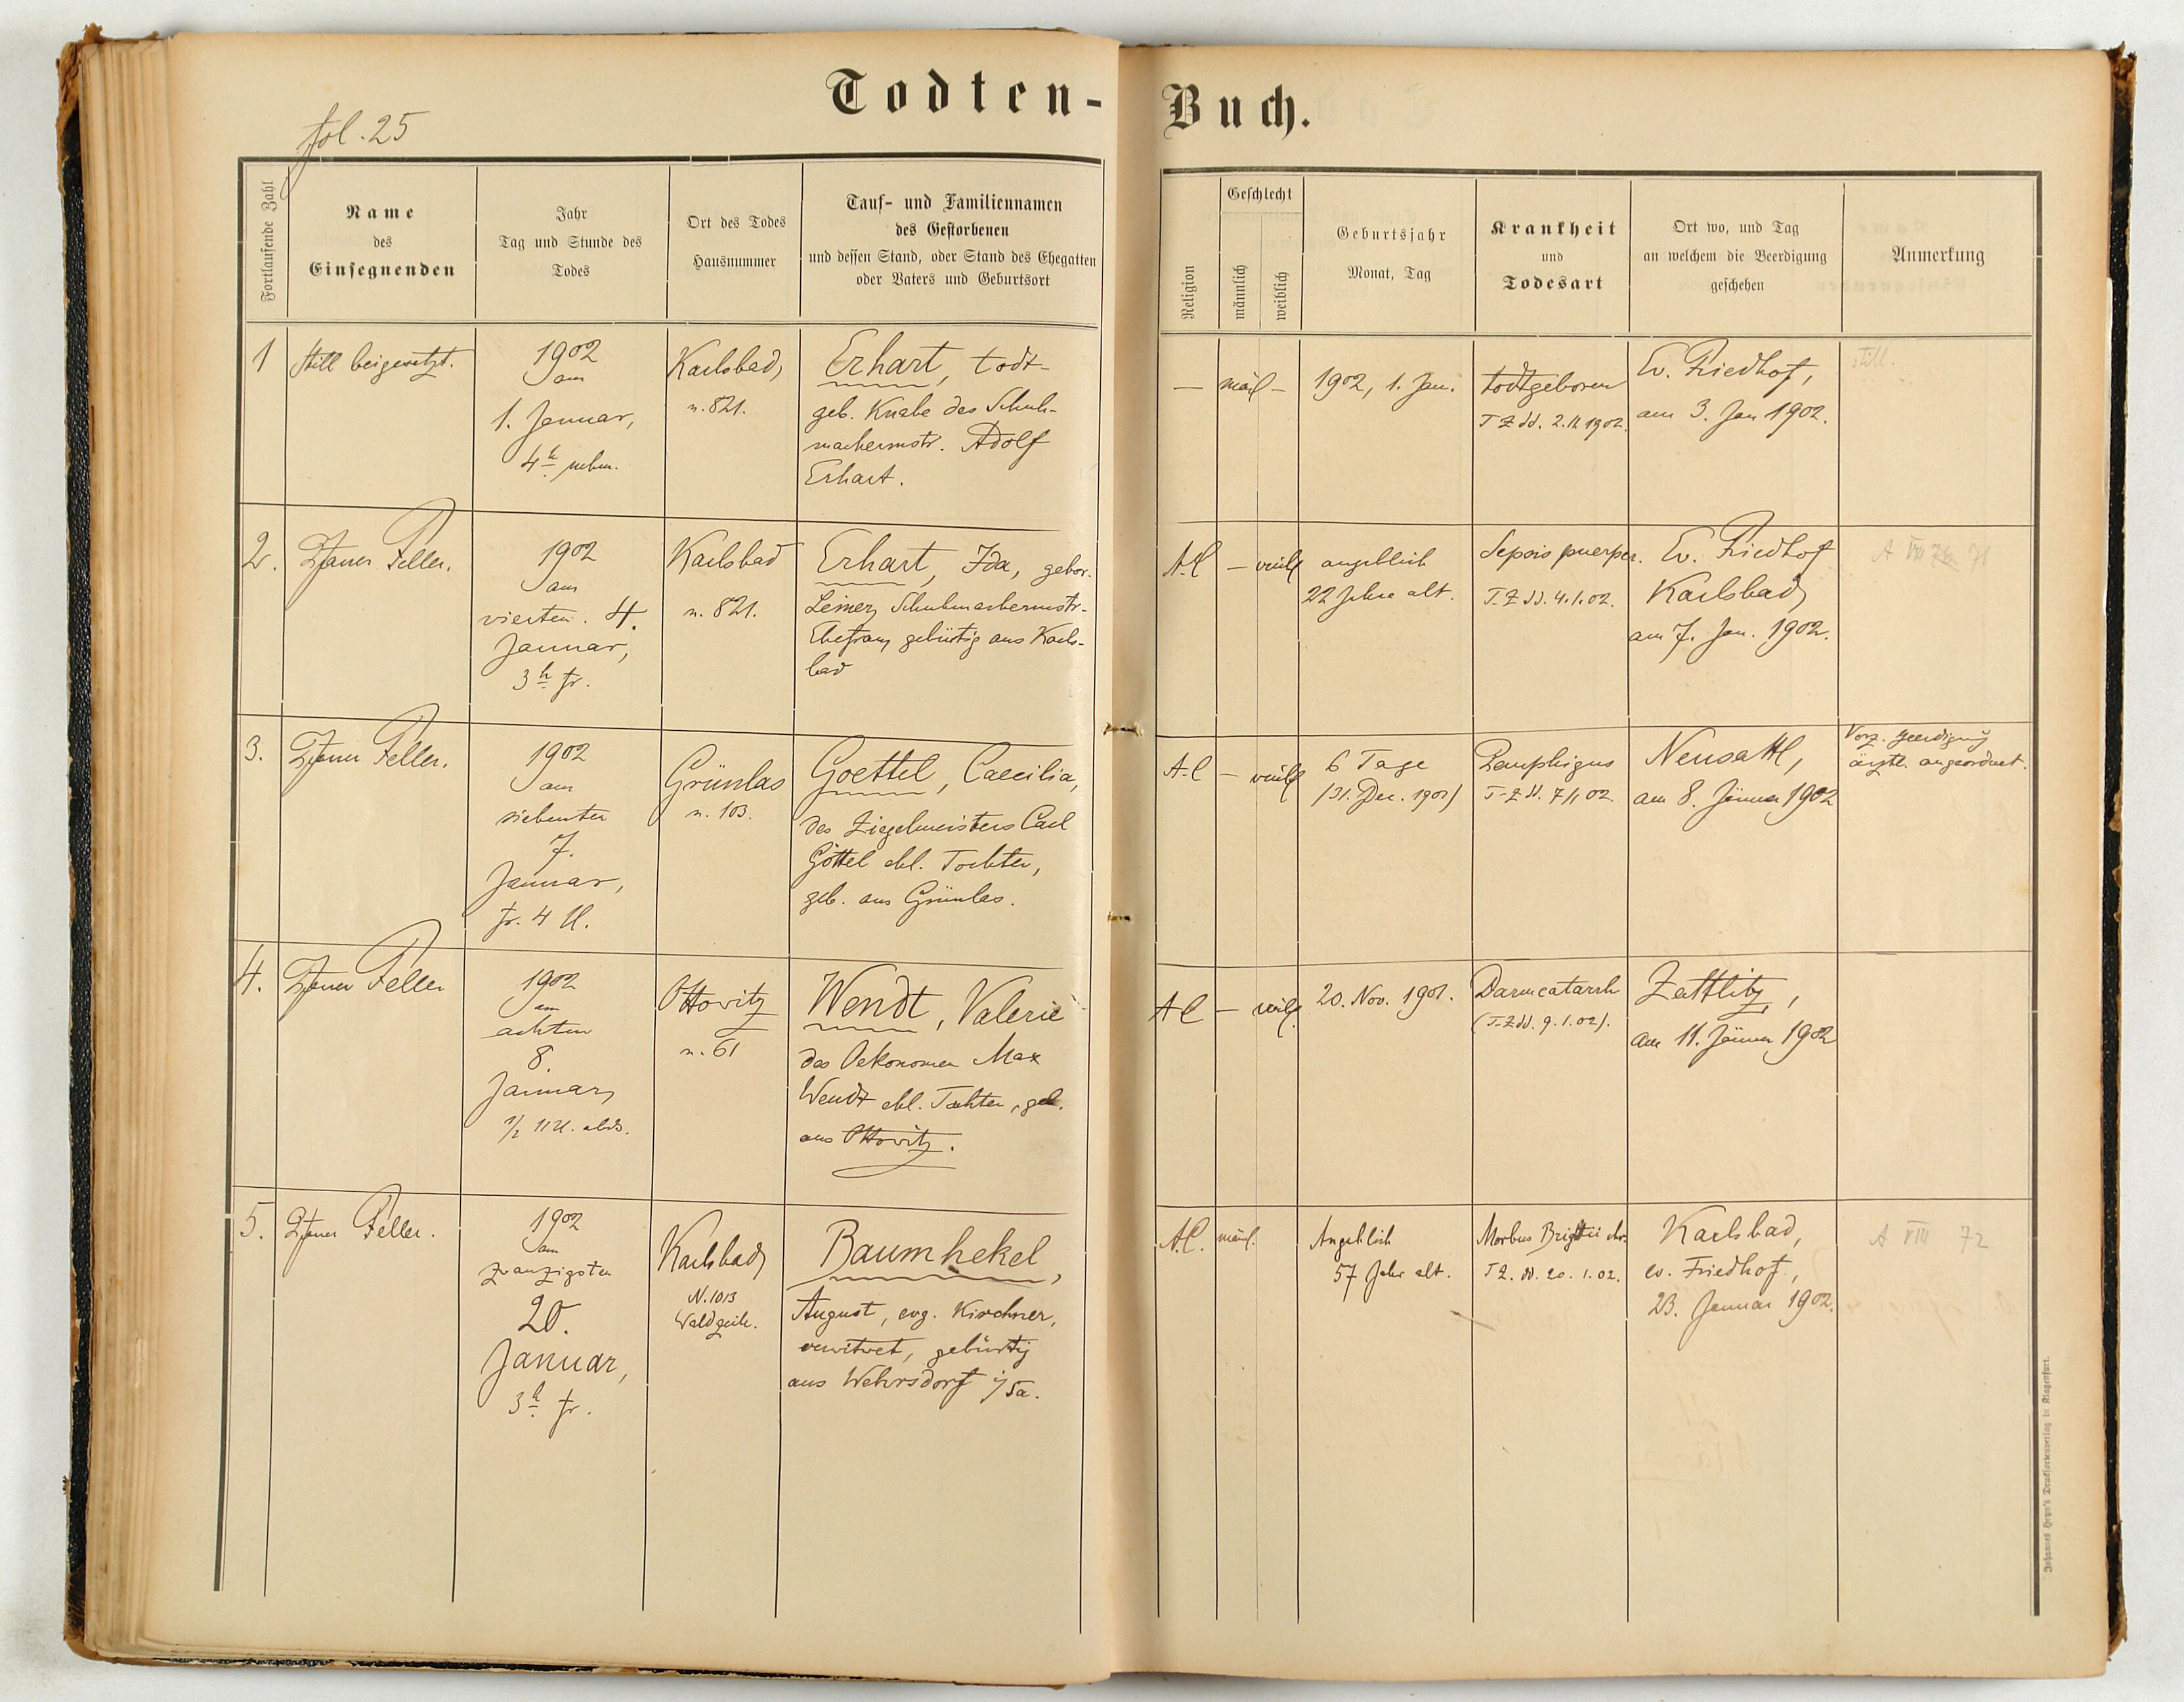 fol. 25
Todten-
Buch.
Fortlaufende Zahl
Name
des
Einsegnenden
Jahr
Tag und Stunde des
Todes
Ort des Todes
Hausnummer
Tauf- und Familiennamen
des Gestorbenen
und dessen Stand, oder Stand des Ehegatten
oder Vaters und Geburtsort
Religion
Geschlecht
männlich
weiblich
Geburtsjahr
Monat, Tag
Krankheit
und
Todesart
Ort wo, und Tag
an welchem die Beerdigung
geschehen
Anmerkung
1
Still beigesetzt.
1902
am
1. Januar,
4h nchm.
Karlsbad,
n. 821.
Erhart, todt-
geb. Knabe des Schuh-
machermstr. Adolf
Erhart.
— mäl —
1902, 1. Jan.
todtgeboren
T Z dd. 2.1.1902.
Ev. Friedhof,
am 3. Jan 1902.
still.
2.
Pfarrer Feller.
1902
am
vierten. 4.
Januar,
3h fr.
Karlsbad
n. 821.
Erhart, Ida, gebor.
Leiner, Schuhmachermstr-
Ehefrau, gebürtig aus Karls-
bad
A.C
— weibl
angeblich
22 Jahre alt.
Sepsis puerper.
T-Z dd. 4.1.02.
Ev. Friedhof
Karlsbad,
am 7. Jan. 1902.
A VIII 71
3.
Pfarrer Feller.
1902
am
siebenten
7.
Januar,
fr. 4 U.
Grünlas
n. 103.
Goettel, Caecilia,
des Ziegelmeisters Carl
Göttel ehl. Tochter,
geb. aus Grünlas.
A.C
— weibl
6 Tage
(31. Dec. 1901)
Pemphigus
T-Z dd. 7/1 02.
Neusattl,
am 8. Jänner 1902
Vorz. Beerdigung
ärztl. angeordnet.
4.
Pfarrer Feller
1902
am
achten
8.
Januar,
1/2 11 U. abds.
Ottowitz
n. 61
Wendt, Valerie
des Oekonomen Max
Wendt ehl. Tochter, geb.
aus Ottowitz.
A C
— weibl.
20. Nov. 1901.
Darmcatarrh
(T-Z dd. 9.1.02).
Zettlitz,
am 11. Jänner 1902
5.
Pfarrer Feller.
1902
am
zwanzigsten
20.
Januar,
3h fr.
Karlsbad,
N. 1013
Waldzeile.
Baumhekel,
August, evg. Kirchner,
verwitwet, gebürtig
aus Wehrsdorf i/Sa.
A.C.
mänl.
Angeblich
57 Jahr alt.
Morbus Brightii chr.
T Z. dd. 20.1.02.
Karlsbad,
ev. Friedhof,
23. Januar 1902.
A VIII 72
Johannes Heyn's Drucksortenverlag in Klagenfurt.